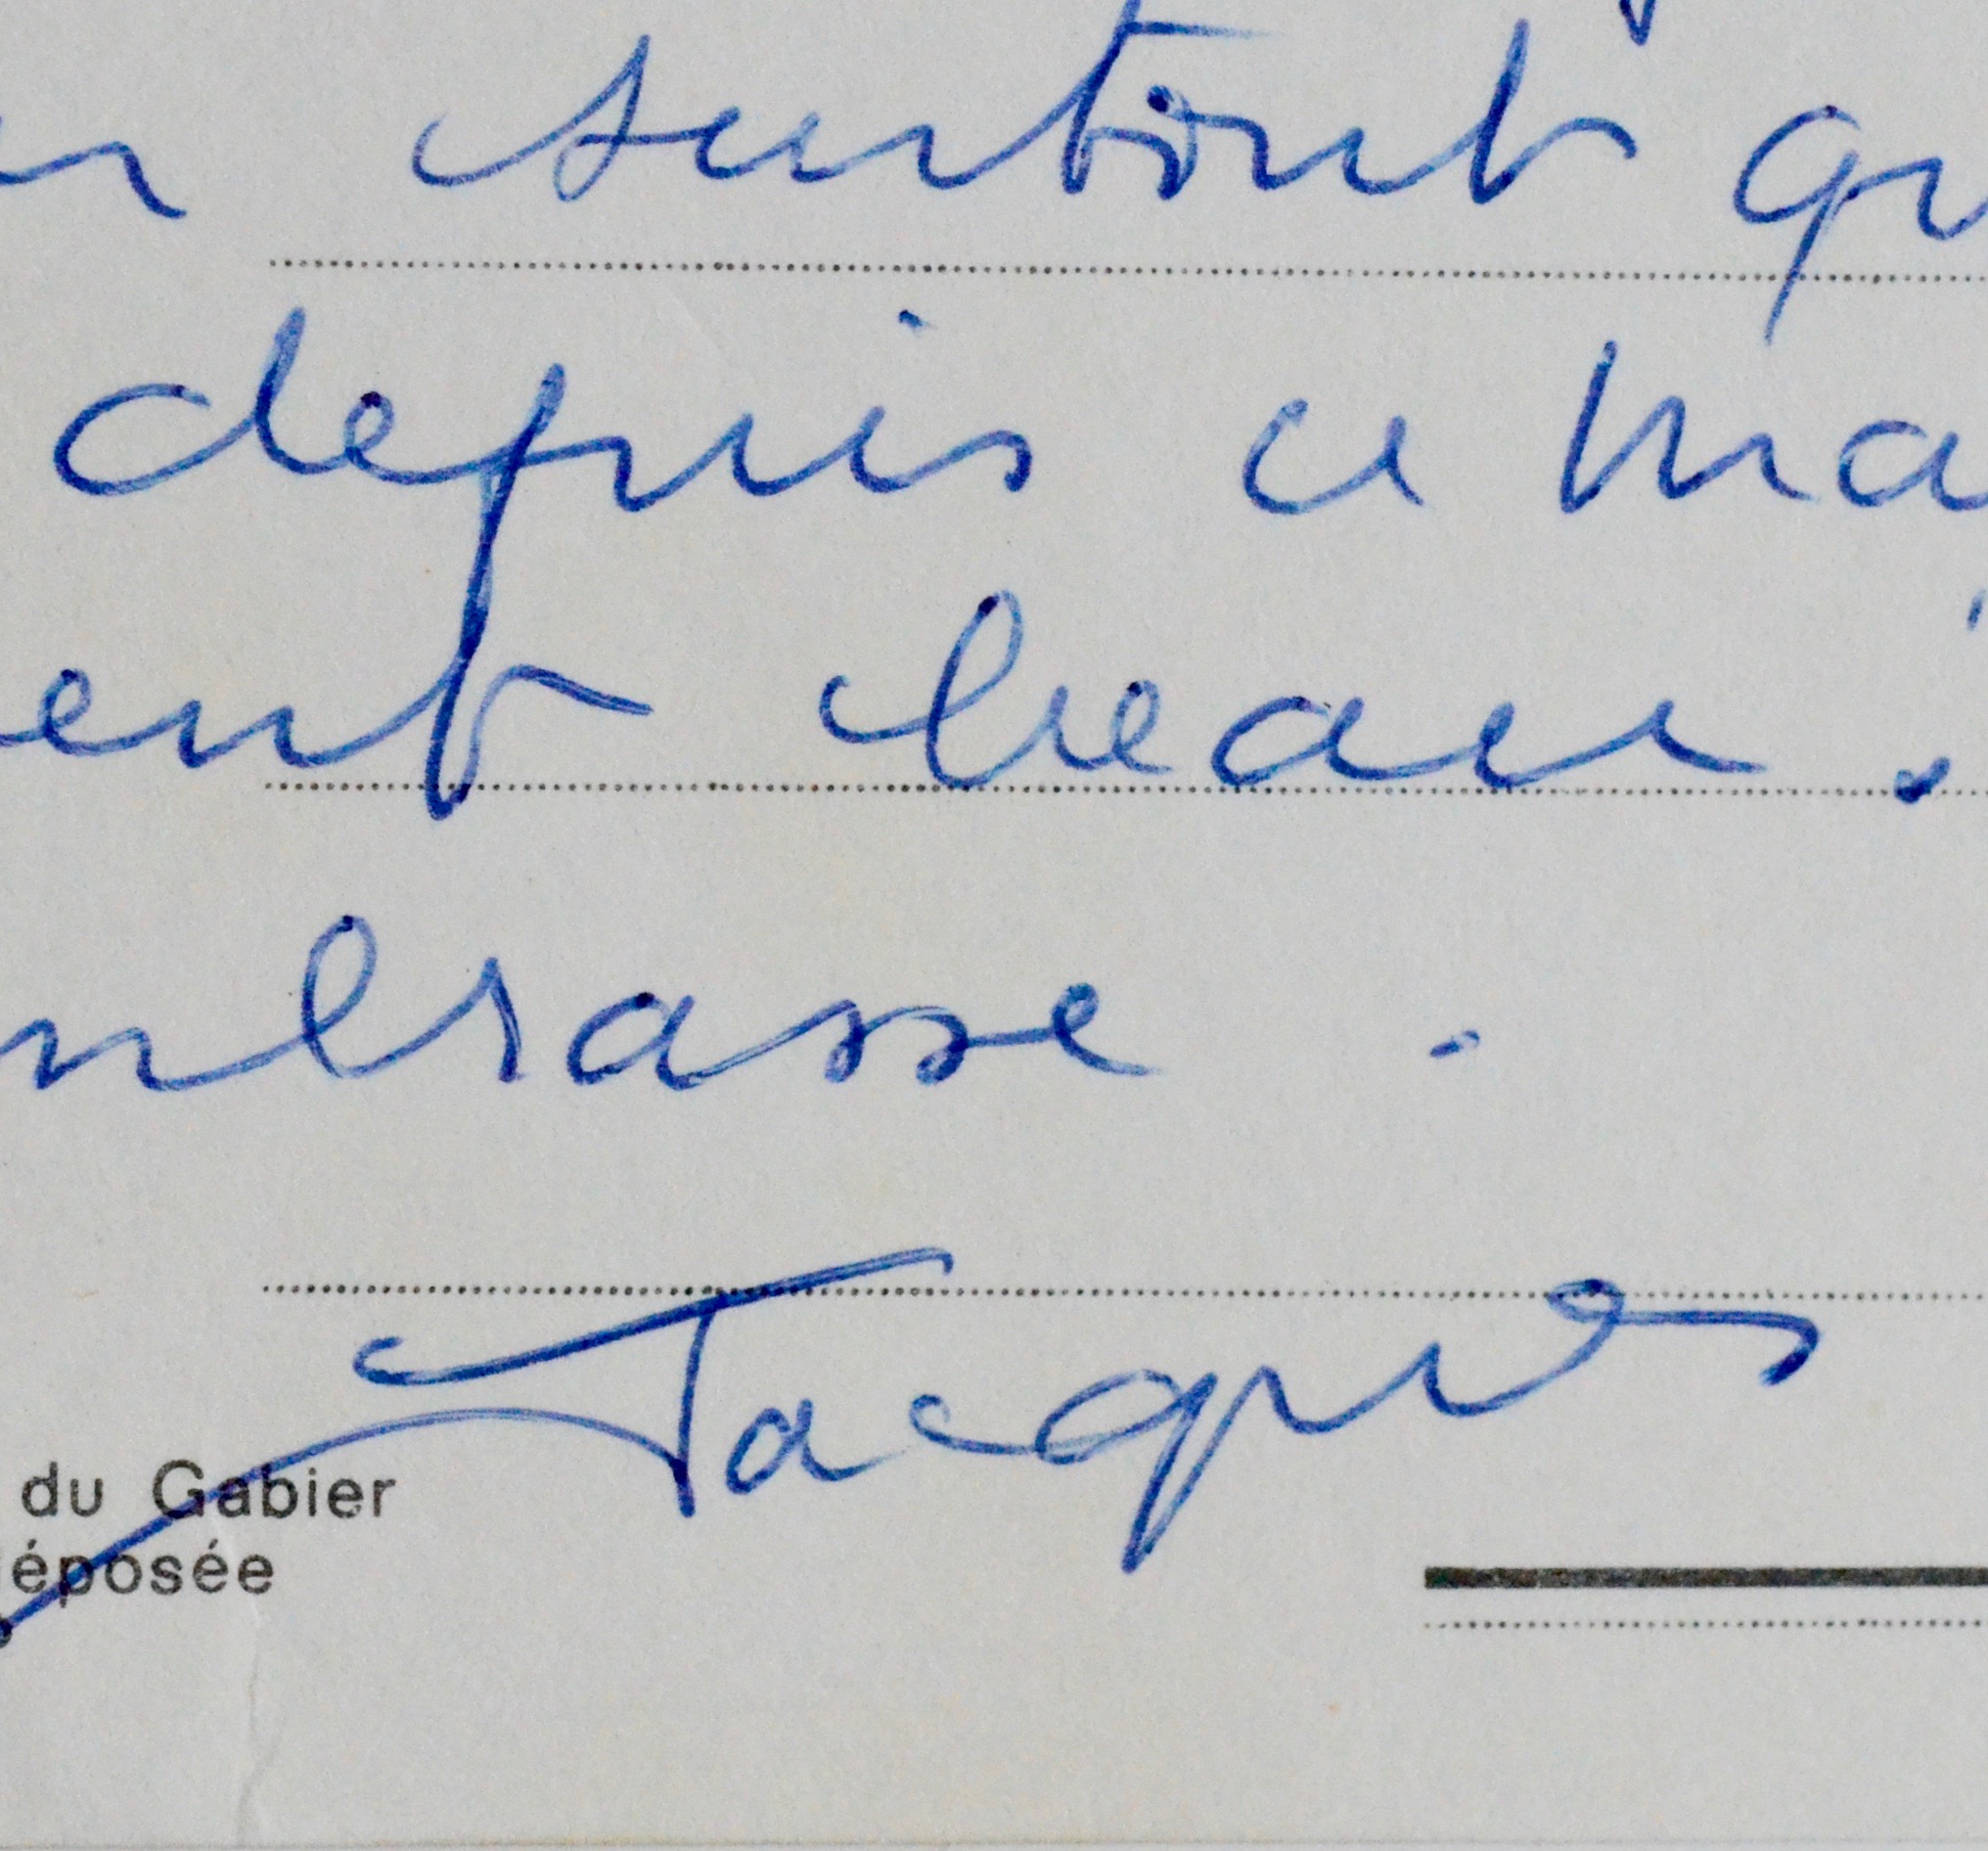 n surtout qu
depuis ce ma
ent beau.
mbrasse.
Jacques
du Gabier
éposée